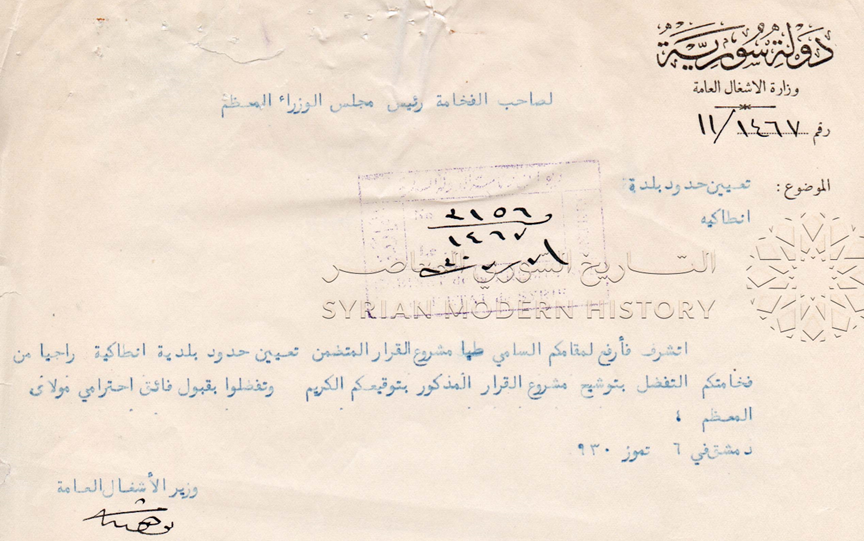 دولة سورية
وزارة الاشغال العامة
رقم ١٤٦٧/١١
لصاحب الفخامة رئيس مجلس الوزراء المعظم
الموضوع: تعيين حدود بلدية
انطاكيه
١٤٦٧
التاريخ السوري المعاصر
SYRIAN MODERN HISTORY
اتشرف فأرفع لمقامكم السامي طيا مشروع القرار المتضمن تعيين حدود بلدية انطاكية راجيا من
فخامتكم التفضل بتوشيح مشروع القرار المذكور بتوقيعكم الكريم وتفضلوا بقبول فائق احترامي مولاي
المعظم ؛
دمشق في ٦ تموز ٩٣٠
وزير الأشغال العامة